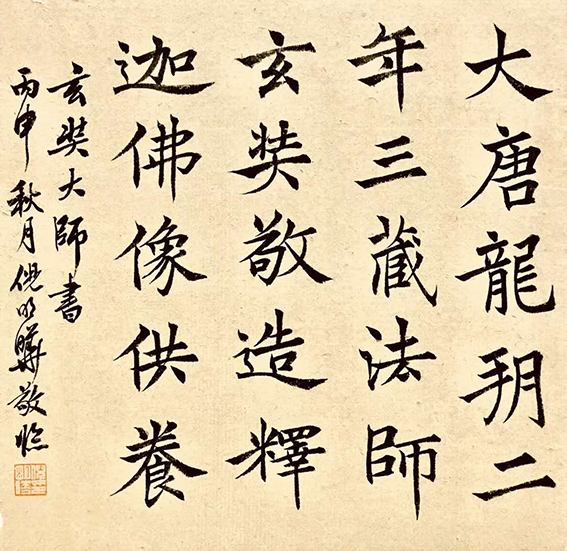 大唐龍朔二
年三藏法師
玄奘敬造釋
迦佛像供養
玄奘大師書
丙申秋月倪明曄敬臨